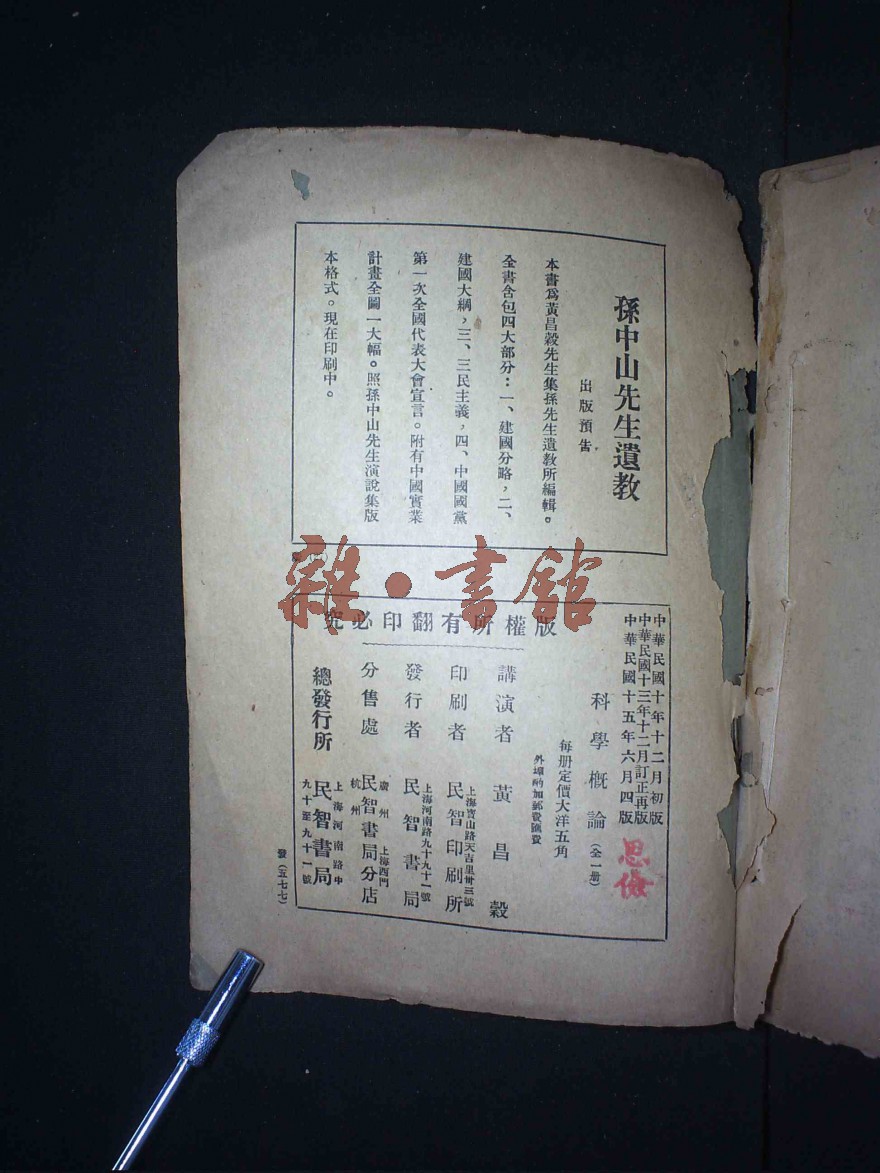 孫中山先生遺教
出版預告
本書爲黃昌穀先生集孫先生遺教所編輯。
全書含包四大部分：一、建國分略，二、
建國大綱，三、三民主義，四、中國國黨
第一次全國代表大會宣言。附有中國實業
計畫全圖一大幅。照孫中山先生演說集版
本格式。現在印刷中。
雜·書館
版權所有翻印必究
中華民國十年十二月初版
中華民國十三年十二月訂正再版
中華民國十五年六月四版
思儉
科學概論（全一册）
每册定價大洋五角
外埠酌加郵費匯費
講演者 黃昌穀
印刷者 上海寶山路天吉里卅三號 民智印刷所
發行者 上海河南路九十九十一號 民智書局
分售處 廣州 上海西門 杭州 民智書局分店
總發行所 上海河南路中 九十至九十一號 民智書局
發（五七七）